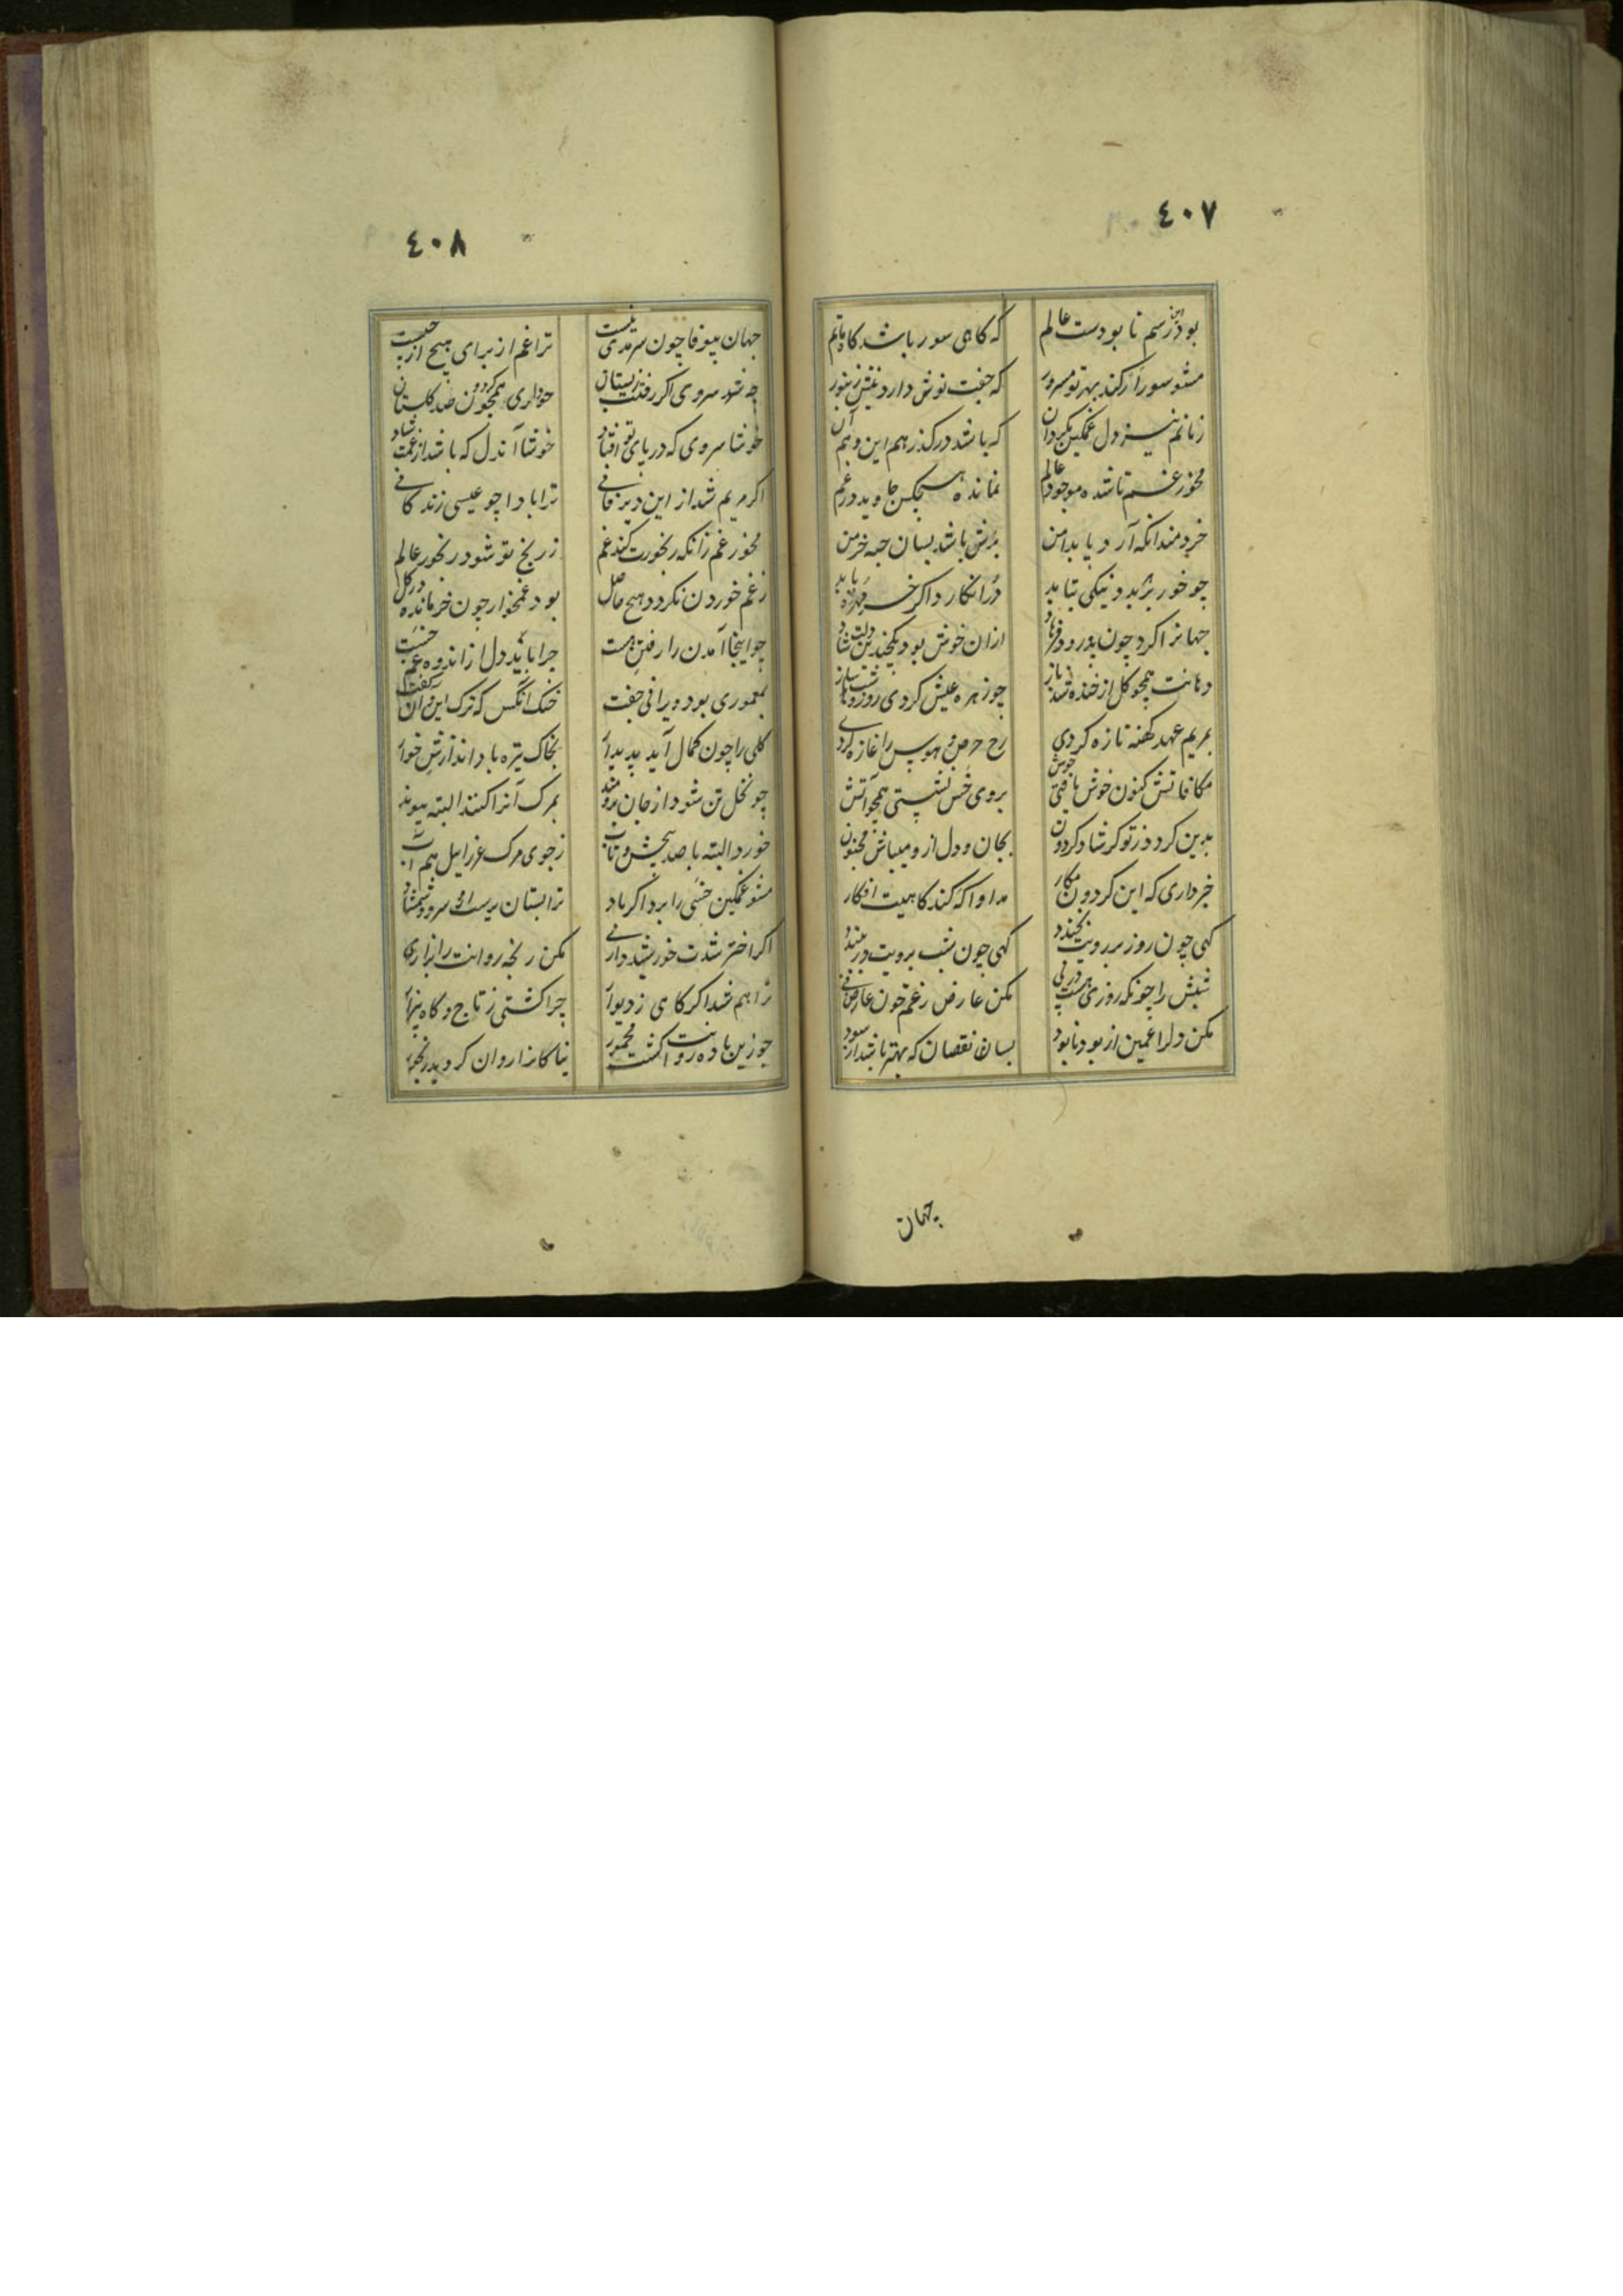 ٤٠٧
بود این رسم نابودست عالم که کاهی سور باشد کاه ماتم
مشو سور ار کند بهر تو مسرور که جفت نوش دارد نیش زنبور
ز ماتم نیز دل غمکین مکردان که باشد در کذر هم این و هم آن
مخور غم تا شده موجود عالم نمانده هیچکس جاوید در غم
خردمند انکه آرد پا بدامن برش باشد بسان حبه خرمن
چو خور بر بد و نیکی بتابد در انکارد اکر خرمهره یابد
جهانرا کرد چون بدرود فرهاد ازان خوش بود یکچندین دلت شاد
دهانت همچو کل از خنده شد باز چو زهره عیش کردی روز و شب ساز
بمریم عهد کهنه تازه کردی رخ حرص و هوس را غازه کردی
مکافاتش کنون خوش یافتی خوش بروی خس نشستی همچو آتش
بدین کردد ز تو کر شاد کردون بجان و دل ازو میباش ممنون
خبر داری که این کردون مکار مداوا که کند کاهیت افکار
کهی چون روز بر رویت بخندد کهی چون شب برویت در ببندد
شبش را چونکه روزی هست در پی مکن عارض ز غم خون عارض فی
مکن دلرا غمین از بود و نابود بسا نقصان که بهتر باشد از سود
جهان
٤٠٨
جهان بیوفا چون سرمدی نیست ترا غم از برای هیچ از چیست
چه شد سروی اکر رفتت ز بستان چو داری همچو کردون صد کلستان
خوشا سروی که در پای تو افتاد خوشا آندل که باشد از غمت شاد
اکر مریم شد از این دیر فانی ترا بادا چو عیسی زندکانی
مخور غم زانکه رنجورت کند غم ز رنج تو شود رنجور عالم
ز غم خوردن نکردد هیچ حاصل بود غمخوار چون خر مانده در کل
چو اینجا آمدن را رفتن هست چرا باید دل از اندوه و غم خست
بمعموری بود ویرانی جفت خنک انکس که ترک این و آن کفت
کلی را چون کمال آید پدیدار بخاک تیره باد اندازدش خوار
چو نخل تن شود از جان برومند بمرک آنرا کنند البته پیوند
خورد البته با صد پیچش و تاب ز جوی مرک عزراییل هم آب
مشو غمکین خسی را برد اکر باد ترا بستان پرست از سرو و شمشاد
اکر اختر شدت خورشید داری مکن رنجه روانت را بزاری
ترا هم شد اکر کاهی ز دیوار چرا کشتی ز تاج و کاه بیزار
چو زین باده روانت کشت مخمور نیاکانرا روان کردید رنجور